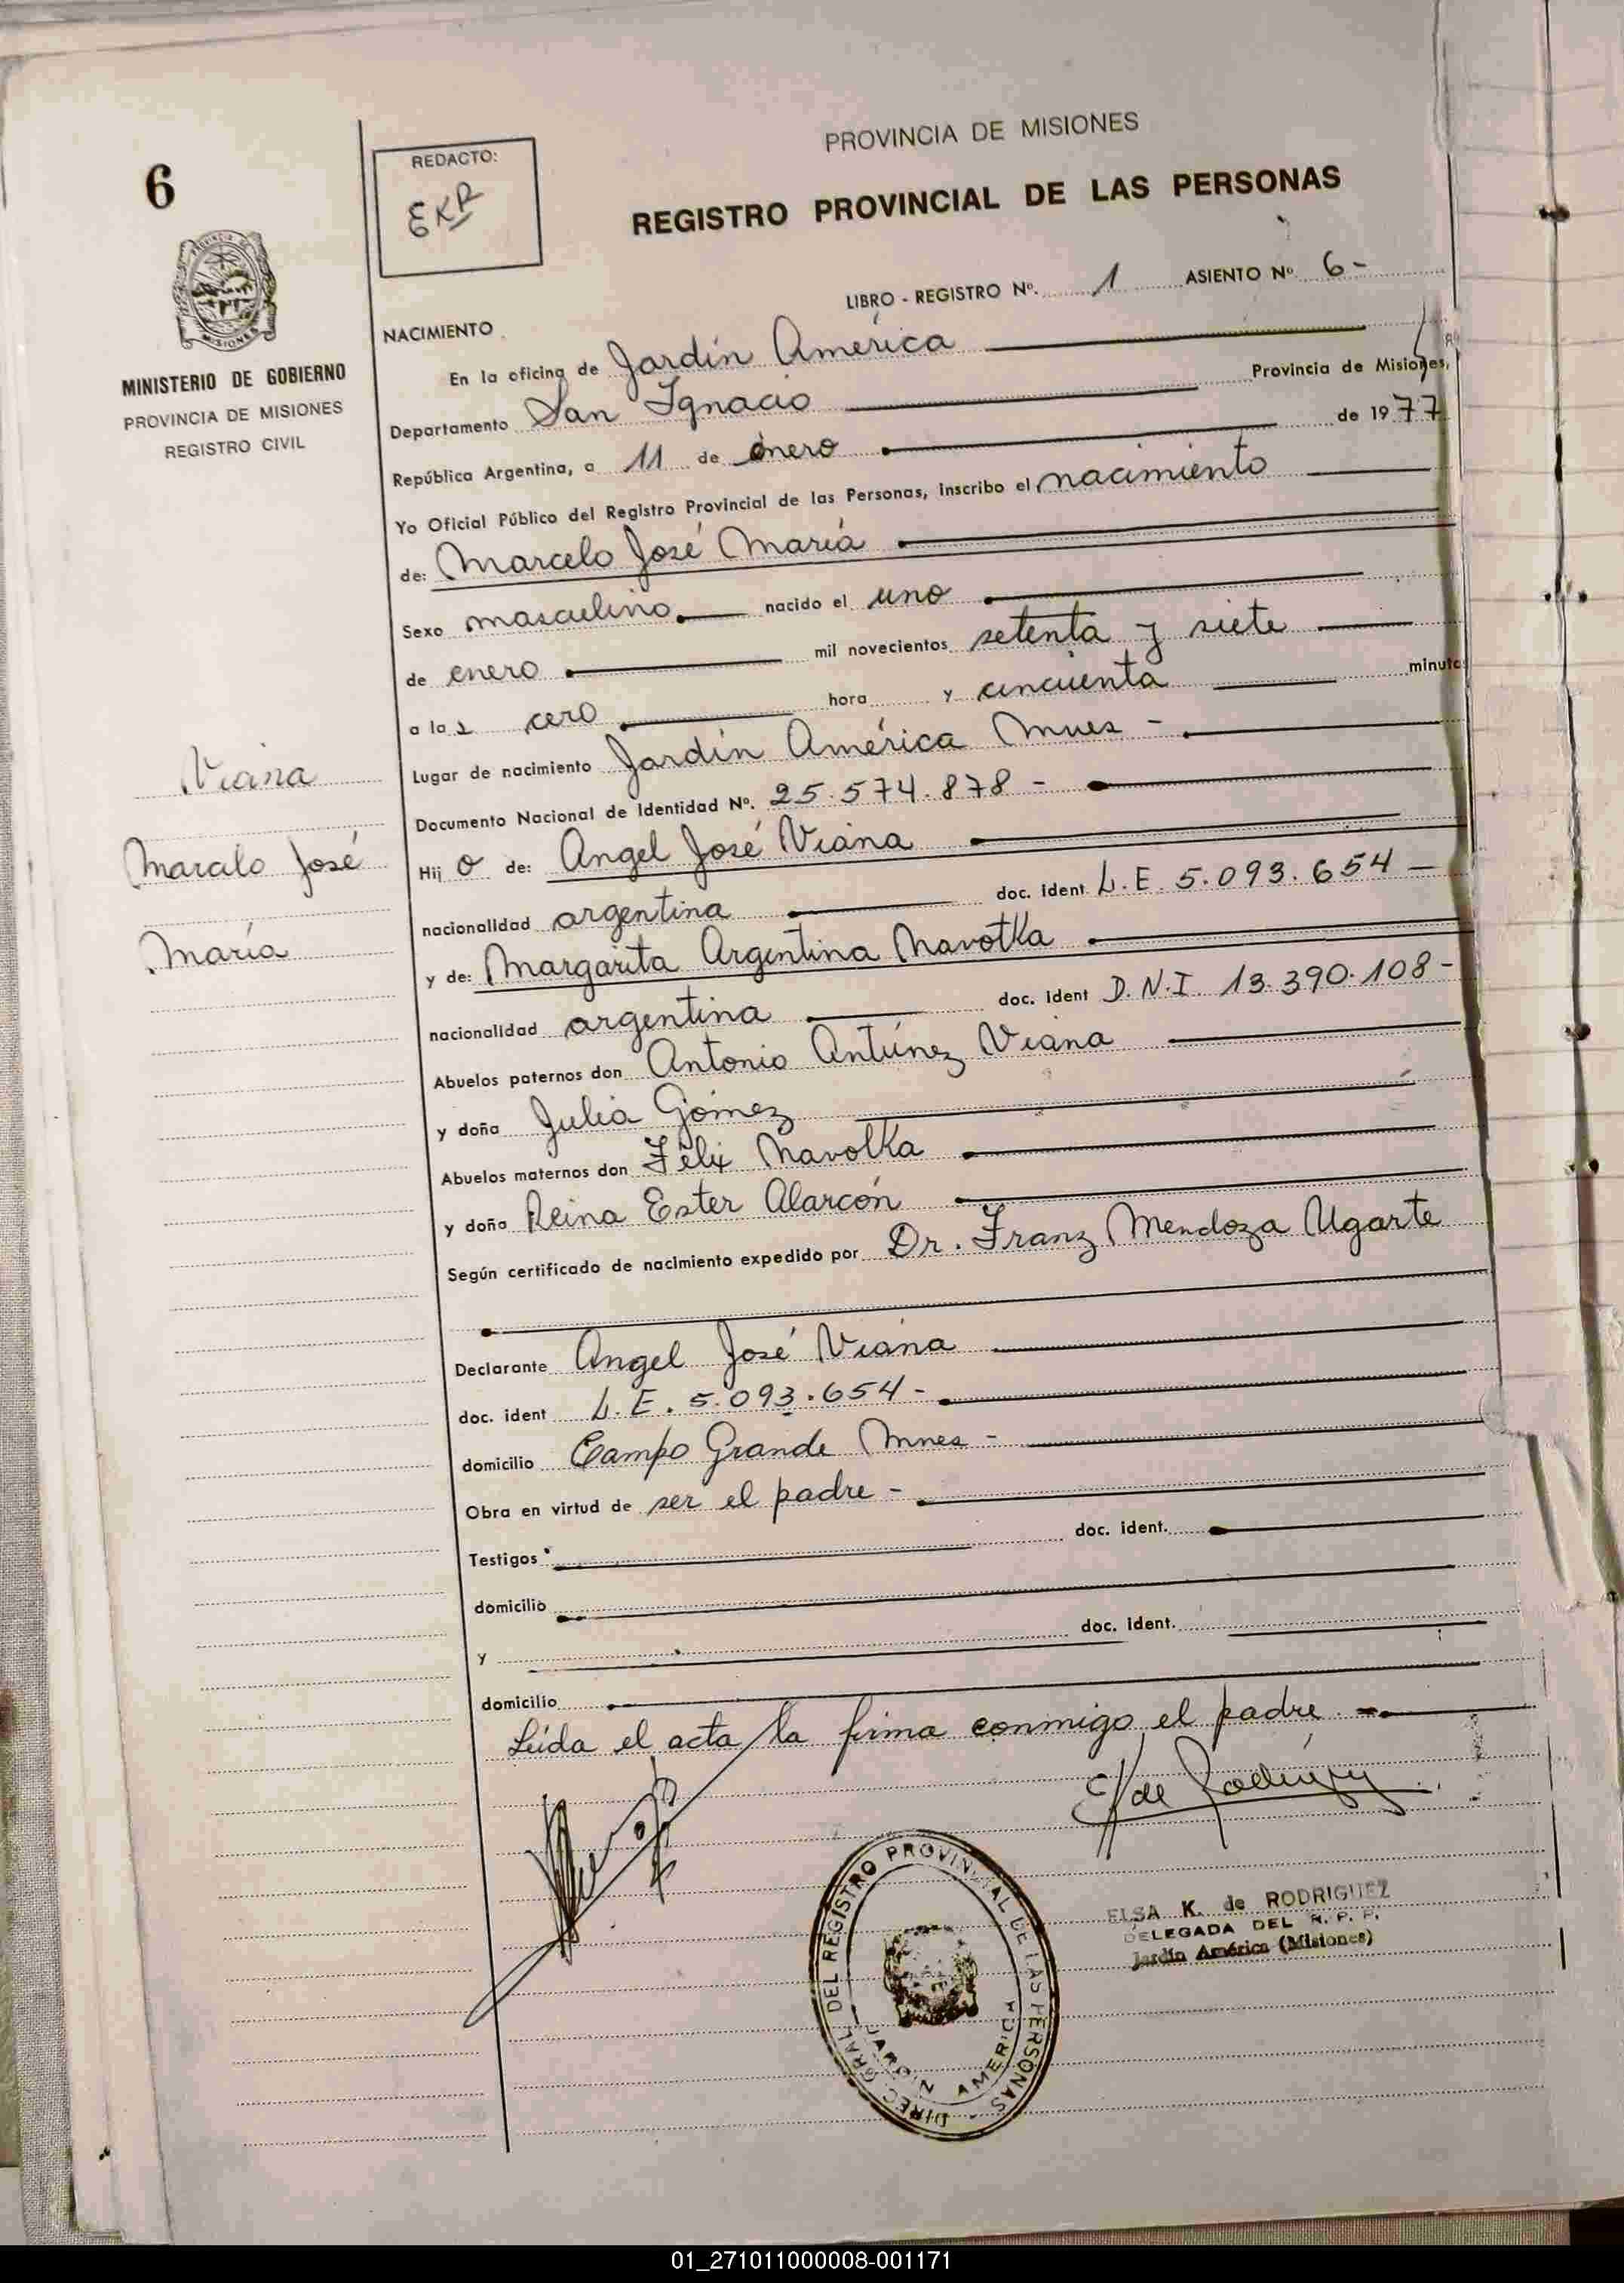 PROVINCIA DE MISIONES
6
REDACTO:
EKR
REGISTRO PROVINCIAL DE LAS PERSONAS
LIBRO - REGISTRO Nº. 1 ASIENTO Nº 6 -
MISIONES
MINISTERIO DE GOBIERNO
PROVINCIA DE MISIONES
REGISTRO CIVIL
NACIMIENTO
En la oficina de Jardín América
Departamento San Ignacio Provincia de Misiones,
República Argentina, a 11 de enero de 1977
Yo Oficial Público del Registro Provincial de las Personas, inscribo el nacimiento
de: Marcelo José María
Sexo masculino nacido el uno
de enero mil novecientos setenta y siete
a las cero hora y cincuenta minuto
Lugar de nacimiento Jardín América Mnes -
Documento Nacional de Identidad Nº. 25.574.878 -
Hijo de: Angel José Viana
nacionalidad argentina doc. ident L.E. 5.093.654 -
y de: Margarita Argentina Navotka
nacionalidad argentina doc. ident D.N.I. 13.390.108 -
Abuelos paternos don Antonio Antúnez Viana
y doña Julia Gómez
Abuelos maternos don Félix Navotka
y doña Reina Ester Alarcón
Según certificado de nacimiento expedido por Dr. Franz Mendoza Ugarte
Declarante Angel José Viana
doc. ident L.E. 5.093.654 -
domicilio Campo Grande Mnes -
Obra en virtud de ser el padre -
Testigos doc. ident.
domicilio
y doc. ident.
domicilio
Leída el acta la firma conmigo el padre. -
Viana
Marcelo José
María
E K de Rodríguez
ELSA K. de RODRIGUEZ
DELEGADA DEL R. P. P.
Jardín América (Misiones)
DIREC. GRAL. DEL REGISTRO PROVINCIAL DE LAS PERSONAS
JARDIN AMERICA
01_271011000008-001171